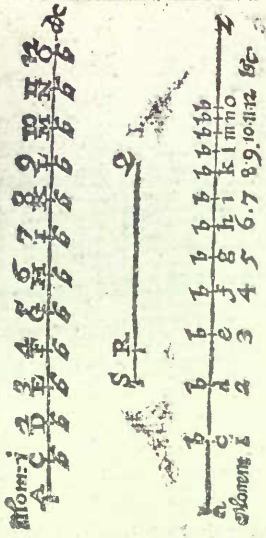 Mom: 1 2 3 4 5 6 7 8 9 10 11 12 &c
A C D E F G H I K L M N O
b b b b b b b b b b b b
S R Q
b b b b b b b b b b b b
a c d e f g h i k l m n o z
Moment 1 2 3 4 5 6.7 8.9.10.11.12 &c